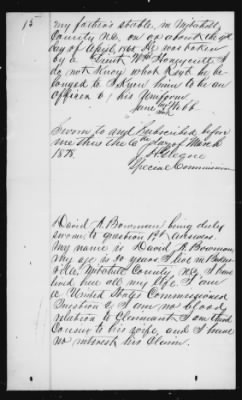 15
my father's stable, in Mitchell
County N.C. on or about the
day of April 1865. He was taken
by a Lieut Wm Honeycutt. I
do not know what Regt he be-
longed to. I knew him to be an
officer by his uniform
Jane Webb
mark
Sworn to and subscribed before
me this the 6th day of March
1878.
Special Commissioner
David A Bowman being duly
sworn to question 1st answers
My name is David A Bowman
my age is 30 years I live in
Mitchell County, N.C. I have
lived here all my life. I am
a United States Commissioned
Question 2. I am no blood
relation to Claimant. I am third
Cousin to his wife, and I have
no interest his Claim.